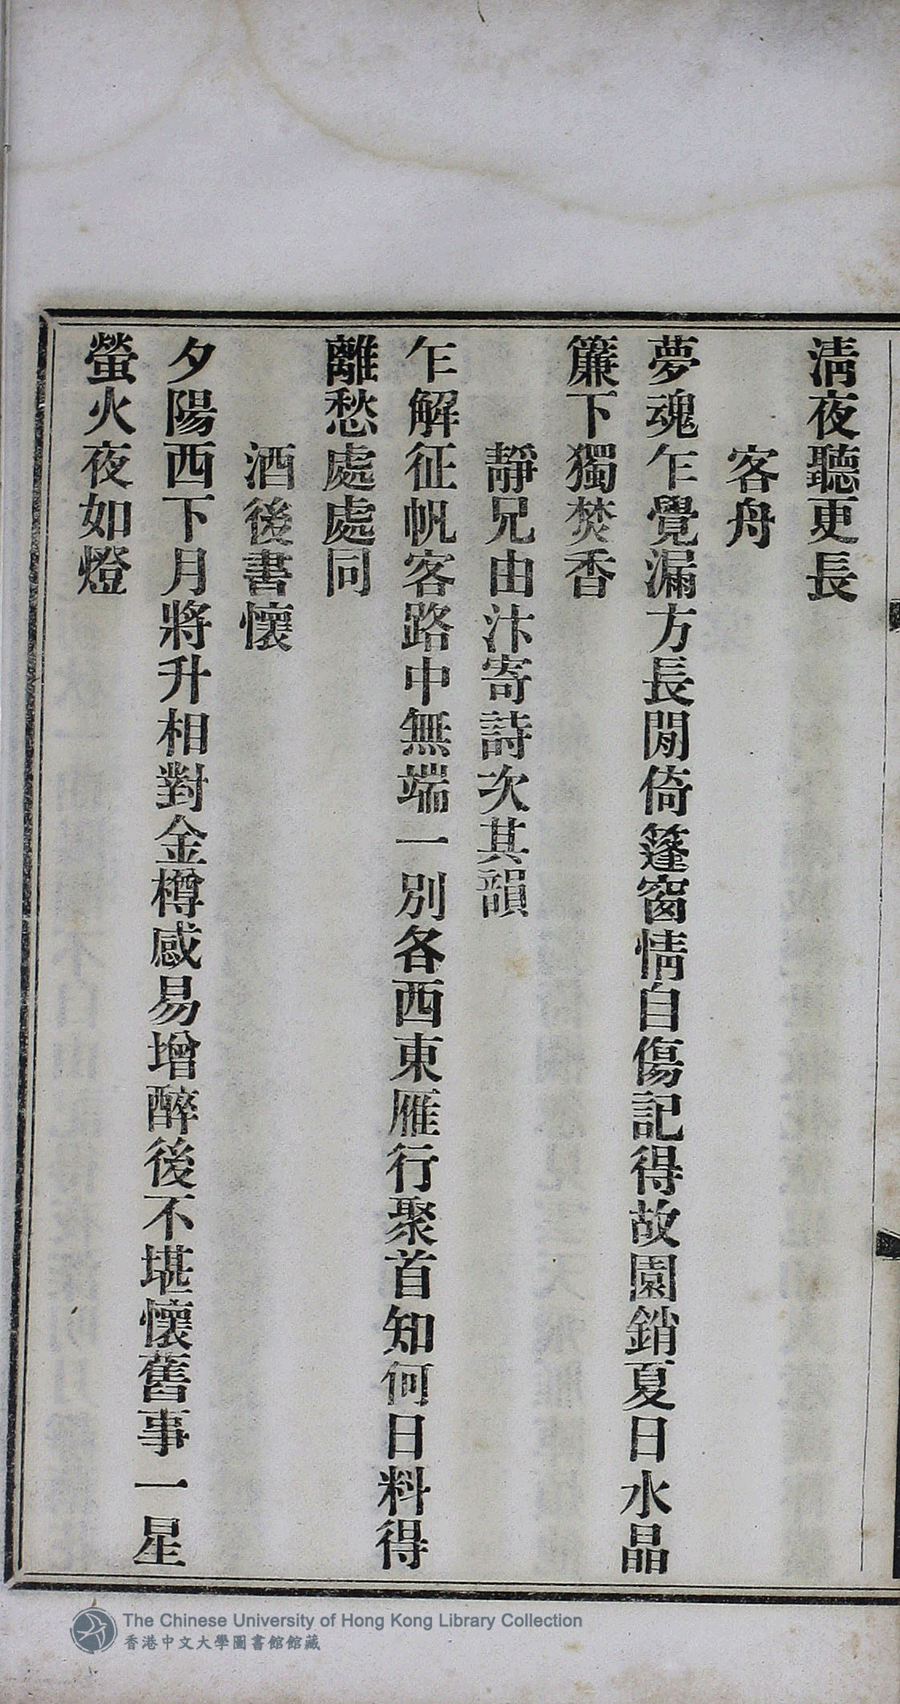 清夜聽更長
客舟
夢魂乍覺漏方長閒倚篷窗情自傷記得故園銷夏日水晶
簾下獨焚香
靜兄由汴寄詩次其韻
乍解征帆客路中無端一別各西東雁行聚首知何日料得
離愁處處同
酒後書懷
夕陽西下月將升相對金樽感易增醉後不堪懷舊事一星
螢火夜如燈
The Chinese University of Hong Kong Library Collection
香港中文大學圖書館館藏